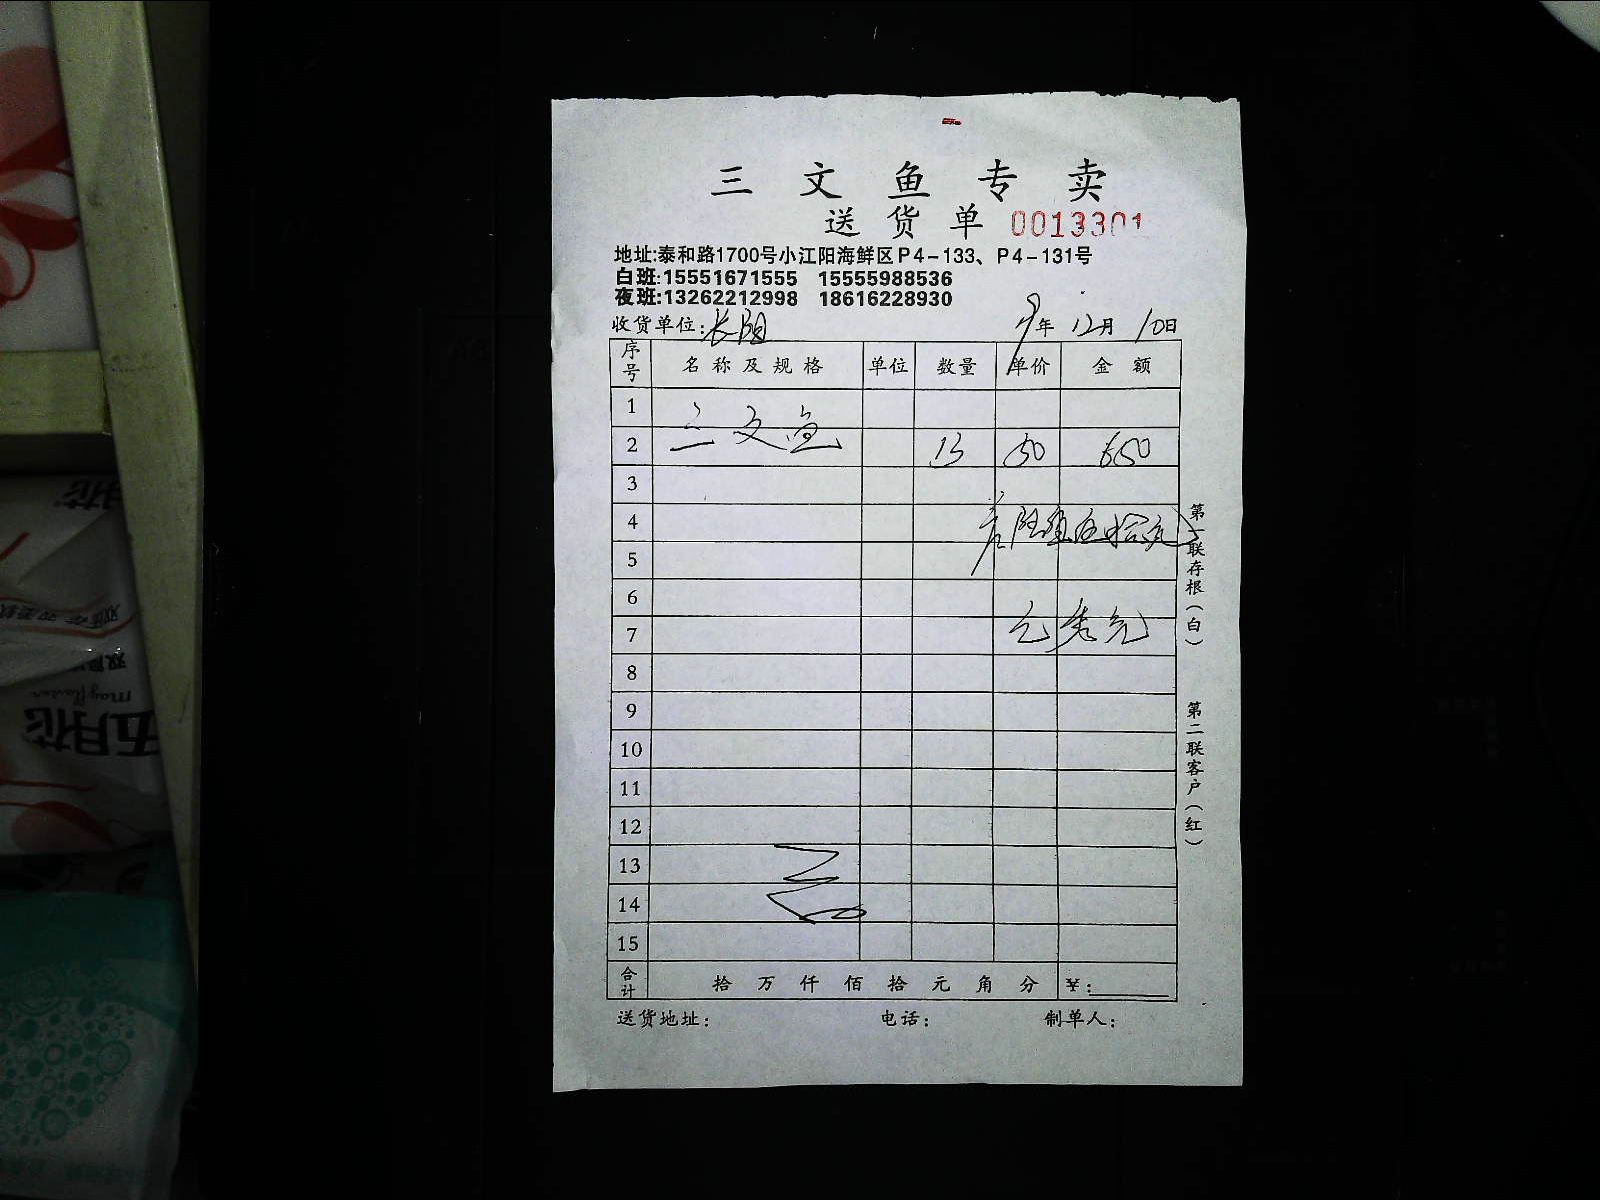 三文鱼专卖
送货单 0013301
地址:泰和路1700号小江阳海鲜区P4-133、P4-131号
白班:15551671555 15555988536
夜班:13262212998 18616228930
收货单位:长阳 年 12月 10日
序号 名称及规格 单位 数量 单价 金额
1
2 三文鱼 13 50 650
3
4
5
6
7
8
9
10
11
12
13
14
15
合计 拾 万 仟 佰 拾 元 角 分 ¥:
送货地址: 电话: 制单人:
第一联存根(白)
第二联客户(红)
五月花
mayflower